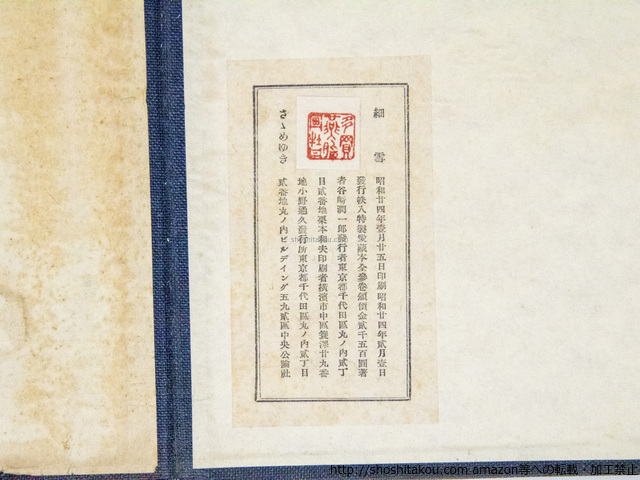 細雪
昭和廿四年壹月廿五日印刷昭和廿四年貳月壹日
發行帙入特製愛藏本全參卷頒價金貳千五百圓著
者谷崎潤一郎發行者東京都千代田區丸ノ内貳丁
目貳番地栗本和夫印刷者横濱市中區蓑澤廿九番
地小野通久發行所東京都千代田區丸ノ内貳丁目
貳番地丸ノ内ビルデイング五九貳區中央公論社
さゝめゆき
shoshitakou.com
http://shoshitakou.com amazon等への転載・加工禁止